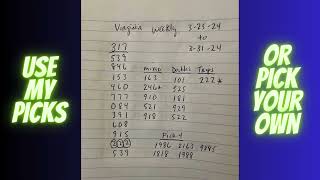 USE
MY
PICKS
Virginia Weekly 3-25-24
to
3-31-24
317
539
846 micro Doubles Trips
153 163 101 222*
460 246* 525
777 910 181
084 521 929
391 918 522
608
915 Pick 4
212 1986 2163 9245
539 1818 1988
OR
PICK
YOUR
OWN